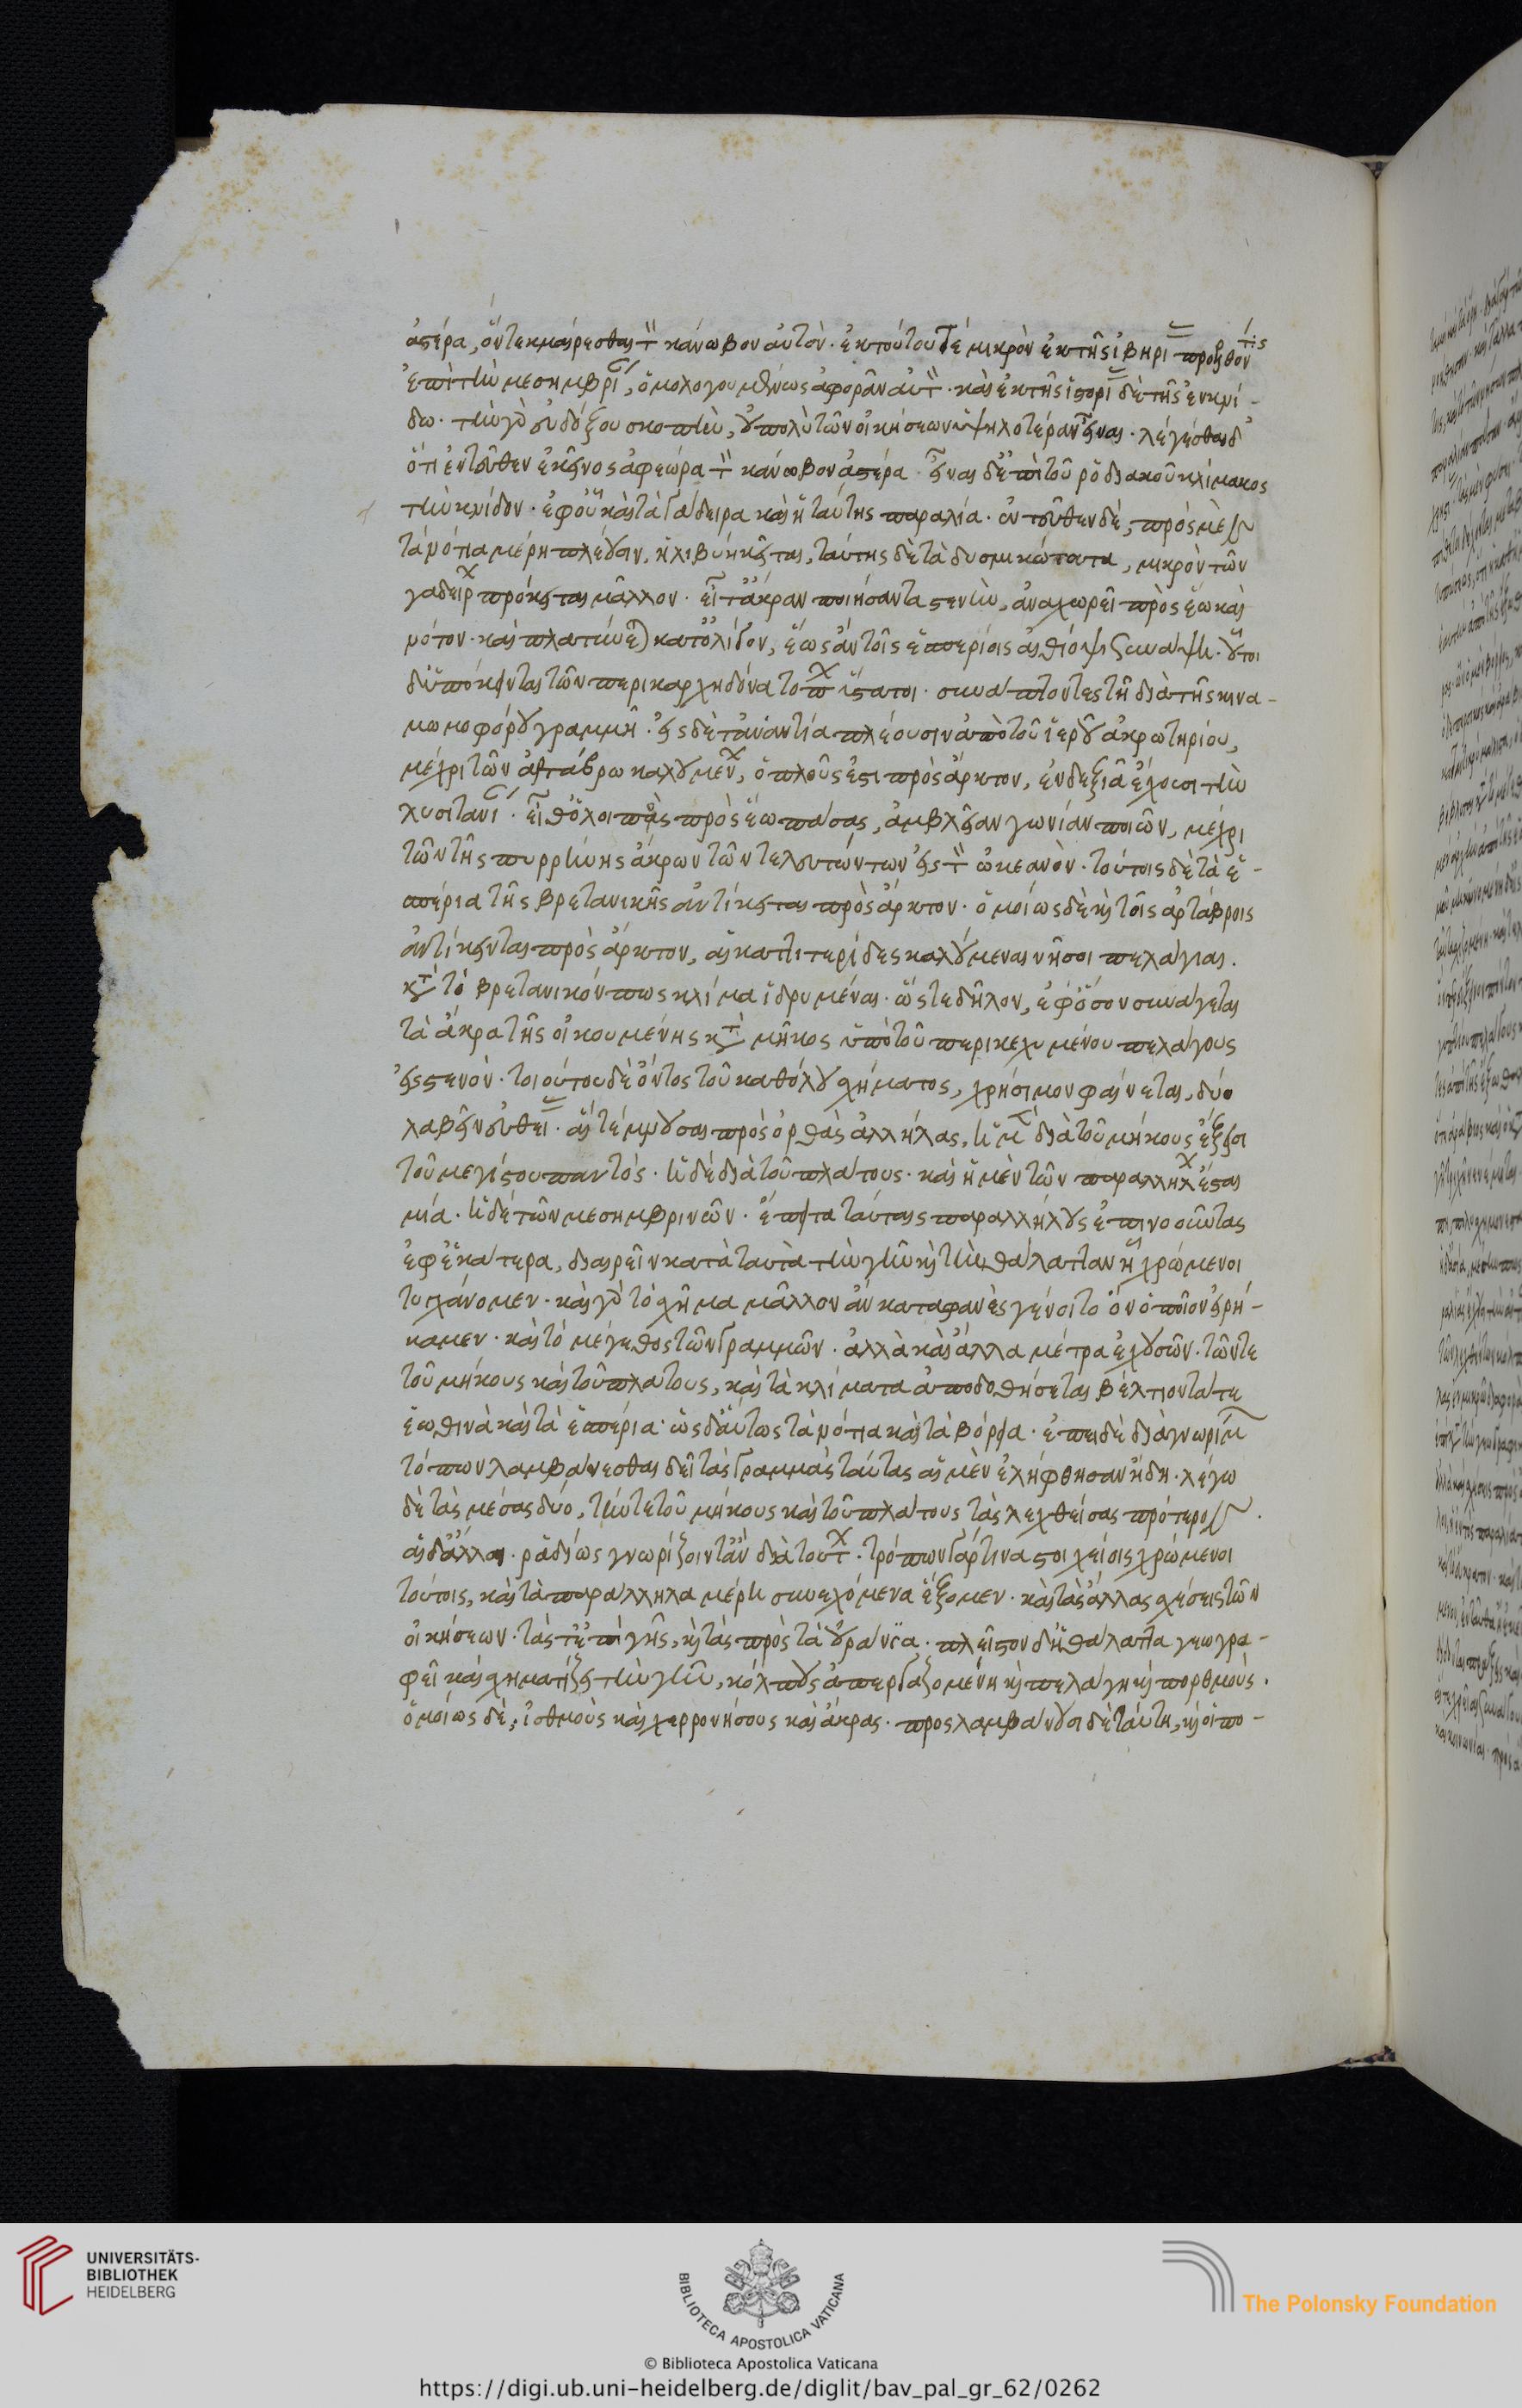 ἀστέρα, ὃν τεκμαίρεσθαι τὸν κάνωβον αὐτὸν. ἐκ τούτου δέ μικρὸν ἐκ τῆς ἰβηρίας προελθόντας
ἐπὶ τὴν μεσημβρίαν, ὁμολογουμένως ἀφορᾶν αὐτὸν. καὶ ἐκ τῆς ἱστορίας δὲ τῆς ἐν κνί-
δω. τὴν γὰρ εὐδόξου σκοπὴν, οὐ πολὺ τῶν οἰκήσεων ὑψηλοτέραν εἶναι. λέγεσθαι δ'
ὅτι ἐντεῦθεν ἐκεῖνος ἀφεώρα τὸν κάνωβον ἀστέρα. εἶναι δ' ἐπὶ τοῦ ῥοδιακοῦ κλίμακος
τὴν κνίδον. ἐφ' οὗ καὶ τὰ γάδειρα καὶ ἡ ταύτης παραλία. ἐντεῦθεν δὲ, πρὸς μὲν
τὰ νότια μέρη πλέουσιν, ἡ λιβύη κεῖται, ταύτης δὲ τὰ δυσμικώτατα, μικρὸν τῶν
γαδείρων πρόκειται μᾶλλον. εἶτ' ἄκραν ποιήσαντα στενὴν, ἀναχωρεῖ πρὸς ἕω καὶ
νότον. καὶ πλατύνεται κατ' ὀλίγον, ἕως ἂν τοῖς ἑσπερίοις αἰθίοψι συνάψη. οὗτοι
δ' ὑπόκεινται τῶν περὶ καρχηδόνα τόπων ὕστατοι. συνάπτοντες τῆ διὰ τῆς κινα-
μωμοφόρου γραμμῆ. εἰς δὲ τἀναντία πλέουσιν ἀπὸ τοῦ ἱεροῦ ἀκρωτηρίου,
μέχρι τῶν ἀρτάβρων καλουμένων, ὁ πλοῦς ἐστι πρὸς ἄρκτον, ἐν δεξιᾶ ἔχουσι τὴν
λυσιτανίαν. εἶθ' ὁ λοιπὸς πρὸς ἕω πᾶσας, ἀμβλεῖαν γωνίαν ποιῶν, μέχρι
τῶν τῆς πυρρήνης ἄκρων τῶν τελευτώντων εἰς τὸν ὠκεανὸν. τούτοις δὲ τὰ ἑ-
σπέρια τῆς βρετανικῆς ἀντίκειται πρὸς ἄρκτον. ὁμοίως δὲ καὶ τοῖς ἀρτάβροις
ἀντίκεινται πρὸς ἄρκτον, αἱ καττιτερίδες καλούμεναι νῆσοι πελάγιαι.
κατὰ τὸ βρετανικόν πως κλίμα ἱδρυμέναι. ὥστε δῆλον, ἐφ' ὅσον συνάγεται
τὰ ἄκρα τῆς οἰκουμένης κατὰ μῆκος ὑπὸ τοῦ περικεχυμένου πελάγους
εἰς στενὸν. τοιούτου δὲ ὄντος τοῦ καθόλου σχήματος, χρήσιμον φαίνεται, δύο
λαβεῖν εὐθείας. αἳ τέμνουσαι πρὸς ὀρθὰς ἀλλήλας, ἡ μὲν διὰ τοῦ μήκους ἕξει
τοῦ μεγίστου παντὸς. ἡ δὲ διὰ τοῦ πλάτους. καὶ ἡ μὲν τῶν παραλλήλων ἔσται
μία. ἡ δὲ τῶν μεσημβρινῶν. ἔπειτα ταύταις παραλλήλους ἐπινοοῦντας
ἐφ' ἑκάτερα, διαιρεῖν κατὰ ταῦτα τὴν γῆν καὶ τὴν θάλατταν ἧ χρώμενοι
τυγχάνομεν. καὶ γὰρ τὸ σχῆμα μᾶλλον ἂν καταφανὲς γένοιτο ὃν ὁποῖον εἰρή-
καμεν. καὶ τὸ μέγεθος τῶν γραμμῶν. ἀλλὰ καὶ ἄλλα μέτρα ἐχουσῶν. τῶν τε
τοῦ μήκους καὶ τοῦ πλάτους, καὶ τὰ κλίματα ἀποδοθήσεται βέλτιον τά τε
ἑωθινὰ καὶ τὰ ἑσπέρια. ὡς δ' αὕτως τὰ νότια καὶ τὰ βόρεια. ἐπειδὲ διὰ γνωρίμων
τόπων λαμβάνεσθαι δεῖ τὰς γραμμὰς ταύτας αἱ μὲν ἐλήφθησαν ἤδη. λέγω
δὲ τὰς μέσας δύο, τήν τε τοῦ μήκους καὶ τοῦ πλάτους τὰς λεχθείσας πρότερον.
αἱ δ' ἄλλαι. ῥαδίως γνωρίζοιντ' ἂν διὰ τούτων. τρόπον γάρ τινα στοιχείοις χρώμενοι
τούτοις, καὶ τὰ παράλληλα μέρη συνεχόμενα ἕξομεν. καὶ τὰς ἄλλας σχέσεις τῶν
οἰκήσεων. τάς τ' ἐπὶ γῆς, καὶ τὰς πρὸς τὰ οὐράνια. πλεῖστον δ' ἡ θάλαττα γεωγρα-
φεῖ καὶ σχηματίζει τὴν γῆν, κόλπους ἀπεργαζομένη καὶ πελάγη καὶ πορθμοὺς.
ὁμοίως δὲ, ἰσθμοὺς καὶ χερρονήσους καὶ ἄκρας. προςλαμβάνουσι δὲ ταύτη, καὶ οἱ πο-
UNIVERSITÄTS-
BIBLIOTHEK
HEIDELBERG
BIBLIOTECA APOSTOLICA VATICANA
The Polonsky Foundation
© Biblioteca Apostolica Vaticana
https://digi.ub.uni-heidelberg.de/diglit/bav_pal_gr_62/0262